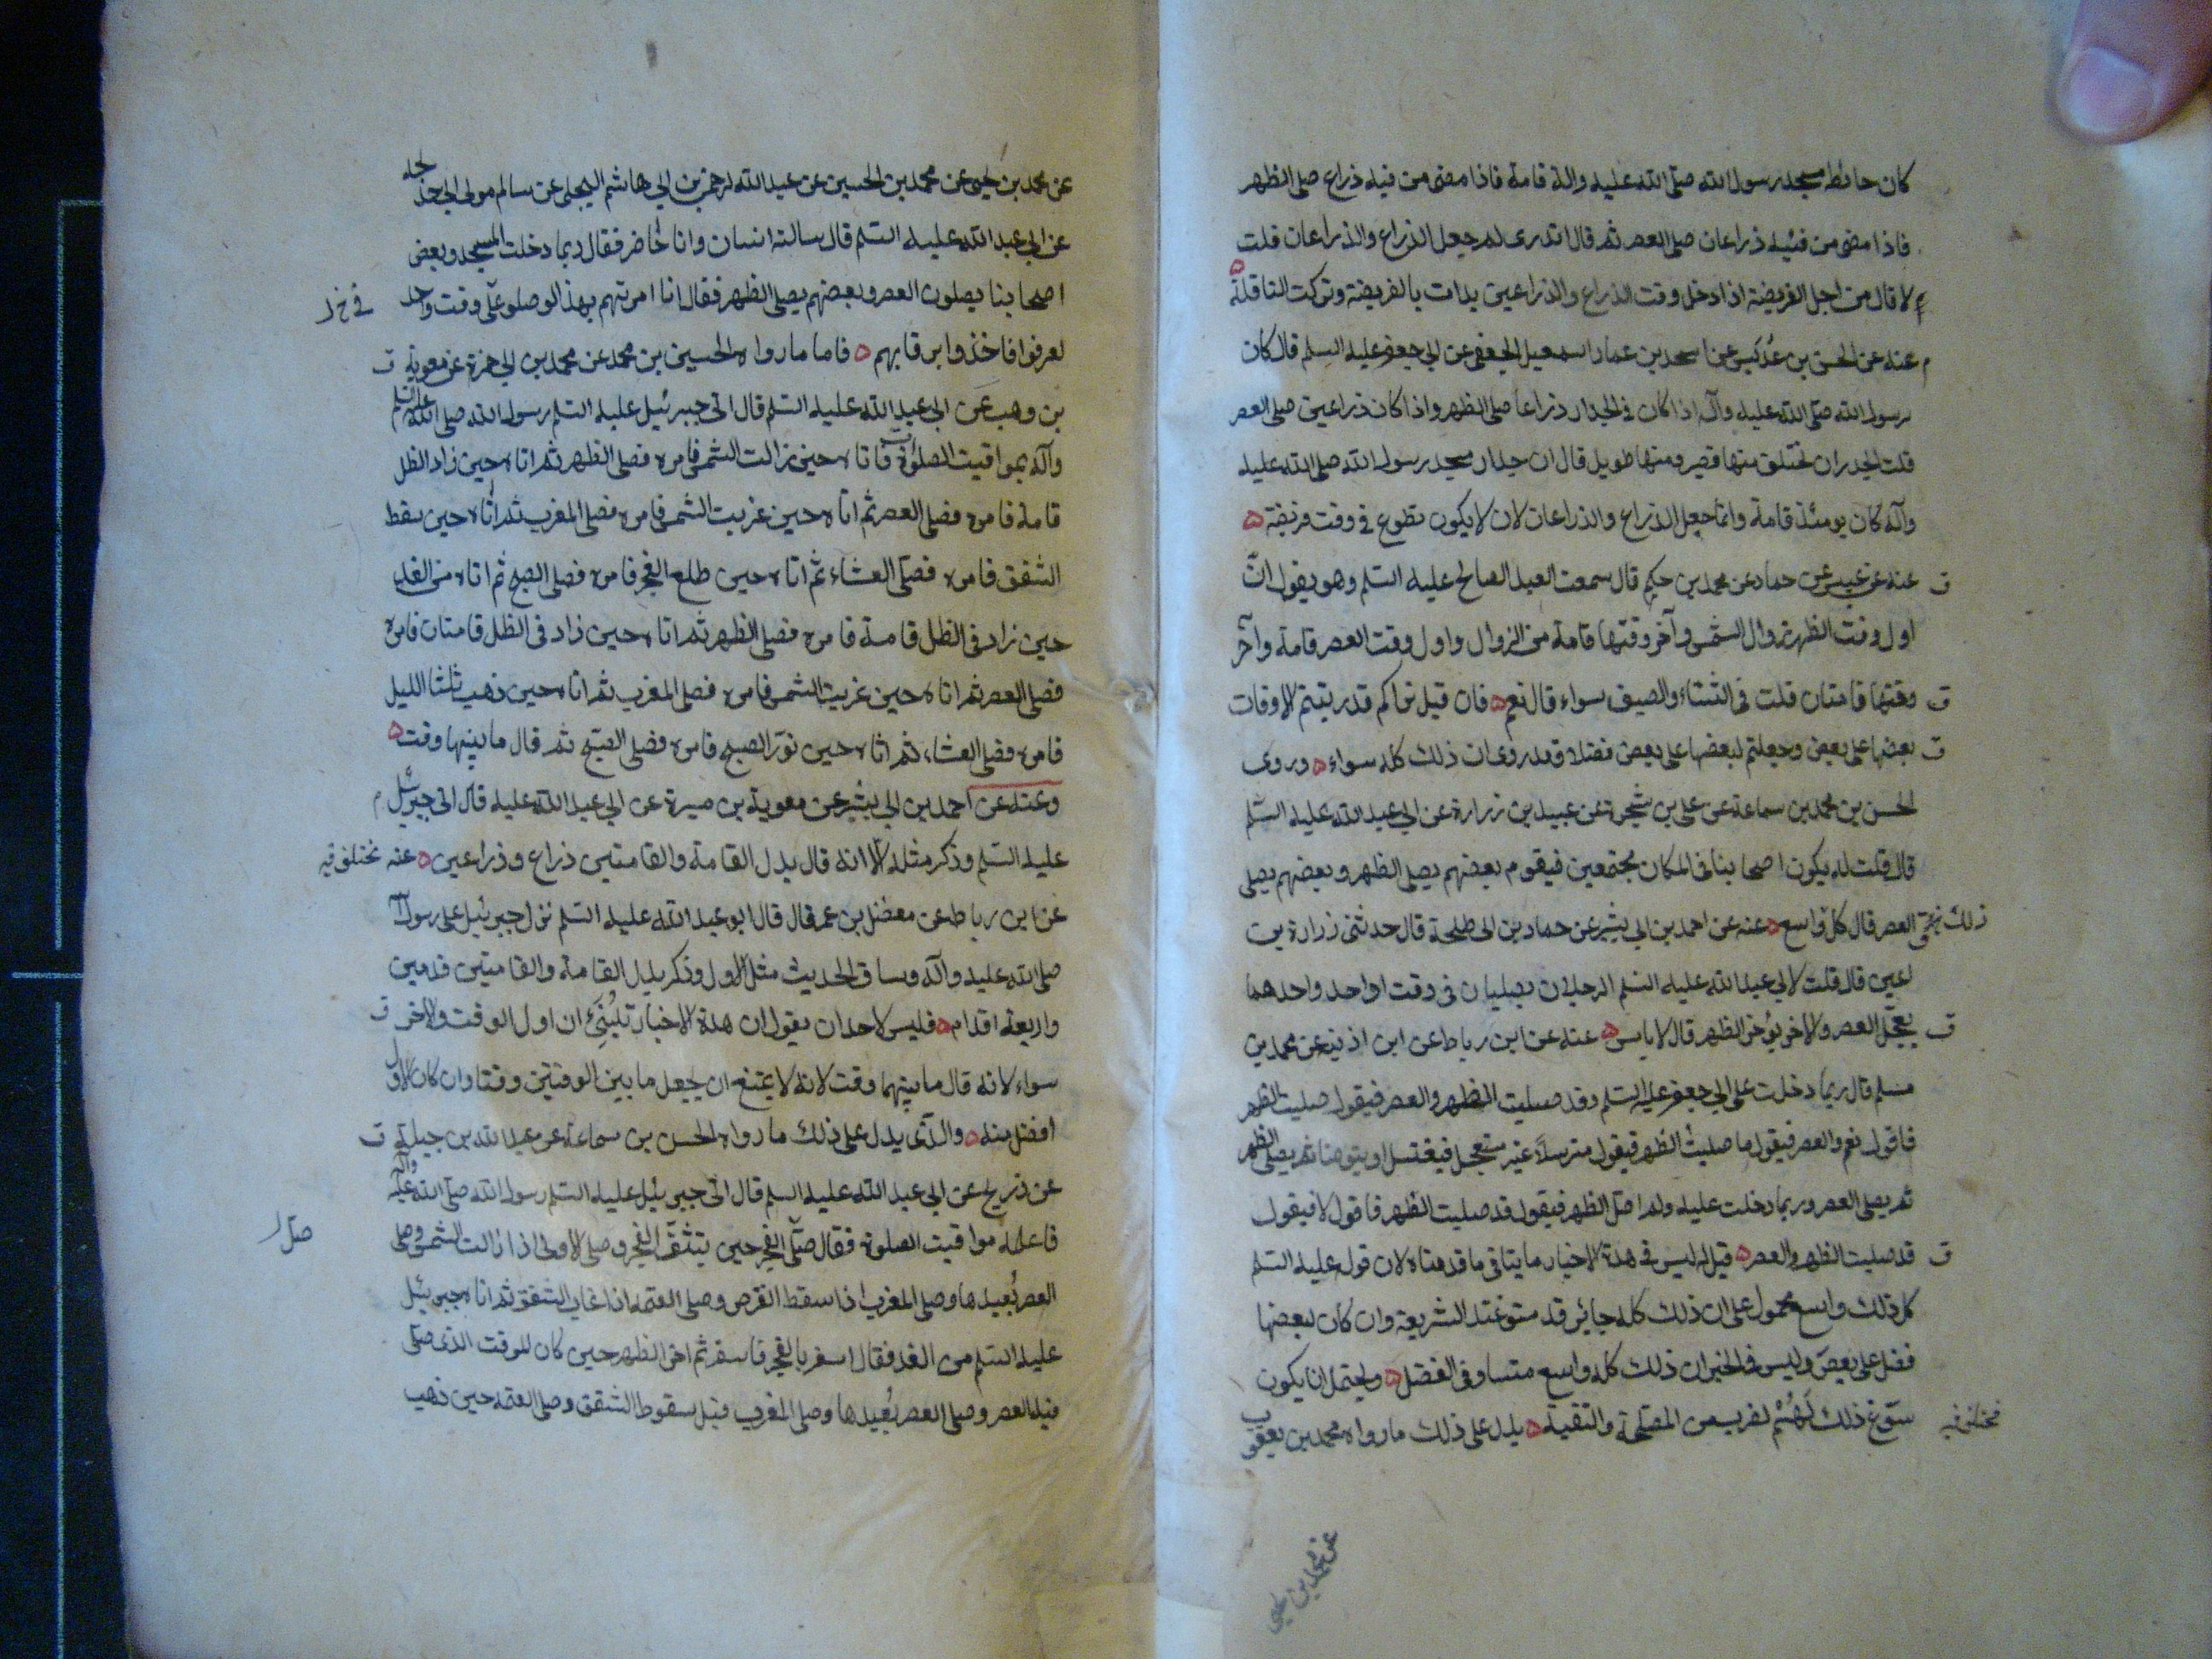 كان حائط مسجد رسول الله صلى الله عليه وآله قامة فاذا مضى من فيئه ذراع صلى الظهر
فاذا مضى من فيئه ذراعان صلى العصر ثم قال اتدرى لم جعل الذراع والذراعان قلت
لا قال من اجل الفريضة اذا دخل وقت الذراع والذراعين بدات بالفريضة وتركت النافلة
م عنه عن الحسن بن عديس عن اسحق بن عمار اسمعيل الجعفى عن ابى جعفر عليه السلم قال كان
رسول الله صلى الله عليه وآله اذا كان فى الجدار ذراعا صلى الظهر واذا كان ذراعين صلى العصر
قلت الجدران تختلف منها قصير ومنها طويل قال ان جدار مسجد رسول الله صلى الله عليه
وآله كان يومئذ قامة وانما جعل الذراع والذراعان لان لا يكون تطوع فى وقت فريضة
ق عنه عن عبيس عن حماد عن محمد بن حكيم قال سمعت العبد الصالح عليه السلم وهو يقول ان
اول وقت الظهر زوال الشمس وآخر وقتها قامة من الزوال واول وقت العصر قامة وآخر
ق وقتها قامتان قلت فى الشتاء والصيف سواء قال نعم فان قيل نراكم قد رتبتم الاوقات
ق بعضها على بعض وجعلتم لبعضها على بعض فضلا وقد روى ان ذلك كله سواء وروى
الحسن بن محمد بن سماعة عن على بن شجرة عن عبيد بن زرارة عن ابى عبد الله عليه السلم
قال قلت له يكون اصحابنا فى المكان مجتمعين فيقوم بعضهم يصلى الظهر وبعضهم يصلى
العصر قال كل واسع عنه عن احمد بن ابى بشير عن حماد بن ابى طلحة قال حدثنى زرارة بن
اعين قال قلت لابى عبد الله عليه السلم الرجلان يصليان فى وقت واحد واحدهما
ق يعجل العصر والاخر يؤخر الظهر قال لا باس عنه عن ابن رباط عن ابن اذينه عن محمد بن
مسلم قال ربما دخلت على ابى جعفر عليه السلم وقد صليت الظهر والعصر فيقول صليت الظهر
فاقول نعم والعصر فيقول ما صليت الظهر فيقوم مترسلا غير مستعجل فيغتسل او يتوضا ثم يصلى الظهر
ثم يصلى العصر وربما دخلت عليه ولم اصل الظهر فيقول قد صليت الظهر فاقول لا فيقول
ق قد صليت الظهر والعصر قيل له ليس فى هذة الاخبار ما ينافى ما قدمناه لان قوله عليه السلم
كل ذلك واسع محمول على ان ذلك كله جائز قد سوغته الشريعه وان كان لبعضها
فضل على بعض وليس فى الخبر ان ذلك كله واسع متساو فى الفضل ويحتمل ان يكون
سوغ ذلك لهم لضرب من المصلحة والتقية يدل على ذلك ما رواه محمد بن يعقوب
عن محمد بن يحيى
عن محمد بن يحيى عن محمد بن الحسين عن عبد الرحمن بن ابى هاشم البجلى عن سالم مولى ابى خديجه
عن ابى عبد الله عليه السلم قال ساله انسان وانا حاضر فقال ربما دخلت المسجد وبعض
اصحابنا يصلون العصر وبعضهم يصلى الظهر فقال انا امرتهم بهذا لو صلوا على وقت واحد
لعرفوا فاخذوا برقابهم فاما ما رواه الحسين بن محمد عن محمد بن ابى حمزة عن معوية ق
بن وهب عن ابى عبد الله عليه السلم قال اتى جبرئيل عليه السلم رسول الله صلى الله عليه
وآله بمواقيت الصلوة فاتاه حين زالت الشمس فامره فصلى الظهر ثم اتاه حين زاد الظل
قامة فامره فصلى العصر ثم اتاه حين غربت الشمس فامره فصلى المغرب ثم اتاه حين سقط
الشفق فامره فصلى العشاء ثم اتاه حين طلع الفجر فامره فصلى الصبح ثم اتاه من الغد
حين زاد فى الظل قامة فامره فصلى الظهر ثم اتاه حين زاد فى الظل قامتان فامره
فصلى العصر ثم اتاه حين غربت الشمس فامره فصلى المغرب ثم اتاه حين ذهب ثلث الليل
فامره فصلى العشاء ثم اتاه حين نور الصبح فامره فصلى الصبح ثم قال ما بينها وقت
وعنه عن احمد بن ابى بشير عن معوية بن ميسرة عن ابى عبد الله عليه قال اتى جبرئيل م
عليه السلم وذكر مثله الا انه قال بدل القامة والقامتين ذراع وذراعين عنه
عن ابن رباط عن مفضل بن عمر قال قال ابو عبد الله عليه السلم نزل جبرئيل على رسول الله
صلى الله عليه وآله وساق الحديث مثل الاول وذكر بدل القامة والقامتين قدمين
واربعة اقدام فليس لاحد ان يقول ان هذة الاخبار تنبئ ان اول الوقت والاخر ق
سواء لانه قال ما بينهما وقت لانه لا يمتنع ان يجعل ما بين الوقتين وقتا وان كان الاول
افضل منه والذى يدل على ذلك ما رواه الحسن بن سماعة عن عبد الله بن جبلة ق
عن ذريح عن ابى عبد الله عليه السلم قال اتى جبرئيل عليه السلم رسول الله صلى الله عليه وآله
فاعلمه مواقيت الصلوة فقال صلى الفجر حين ينشق الفجر وصلى الاولى اذا زالت الشمس وصلى
العصر بعيدها وصلى المغرب اذا سقط القرص وصلى العتمه اذا غاب الشفق ثم اتاه جبرئيل
عليه السلم من الغد فقال اسفر بالفجر فاسفر ثم اخر الظهر حين كان للوقت الذى صلى
فيه العصر وصلى العصر بعيدها وصلى المغرب قبل سقوط الشفق وصلى العتمه حين ذهب